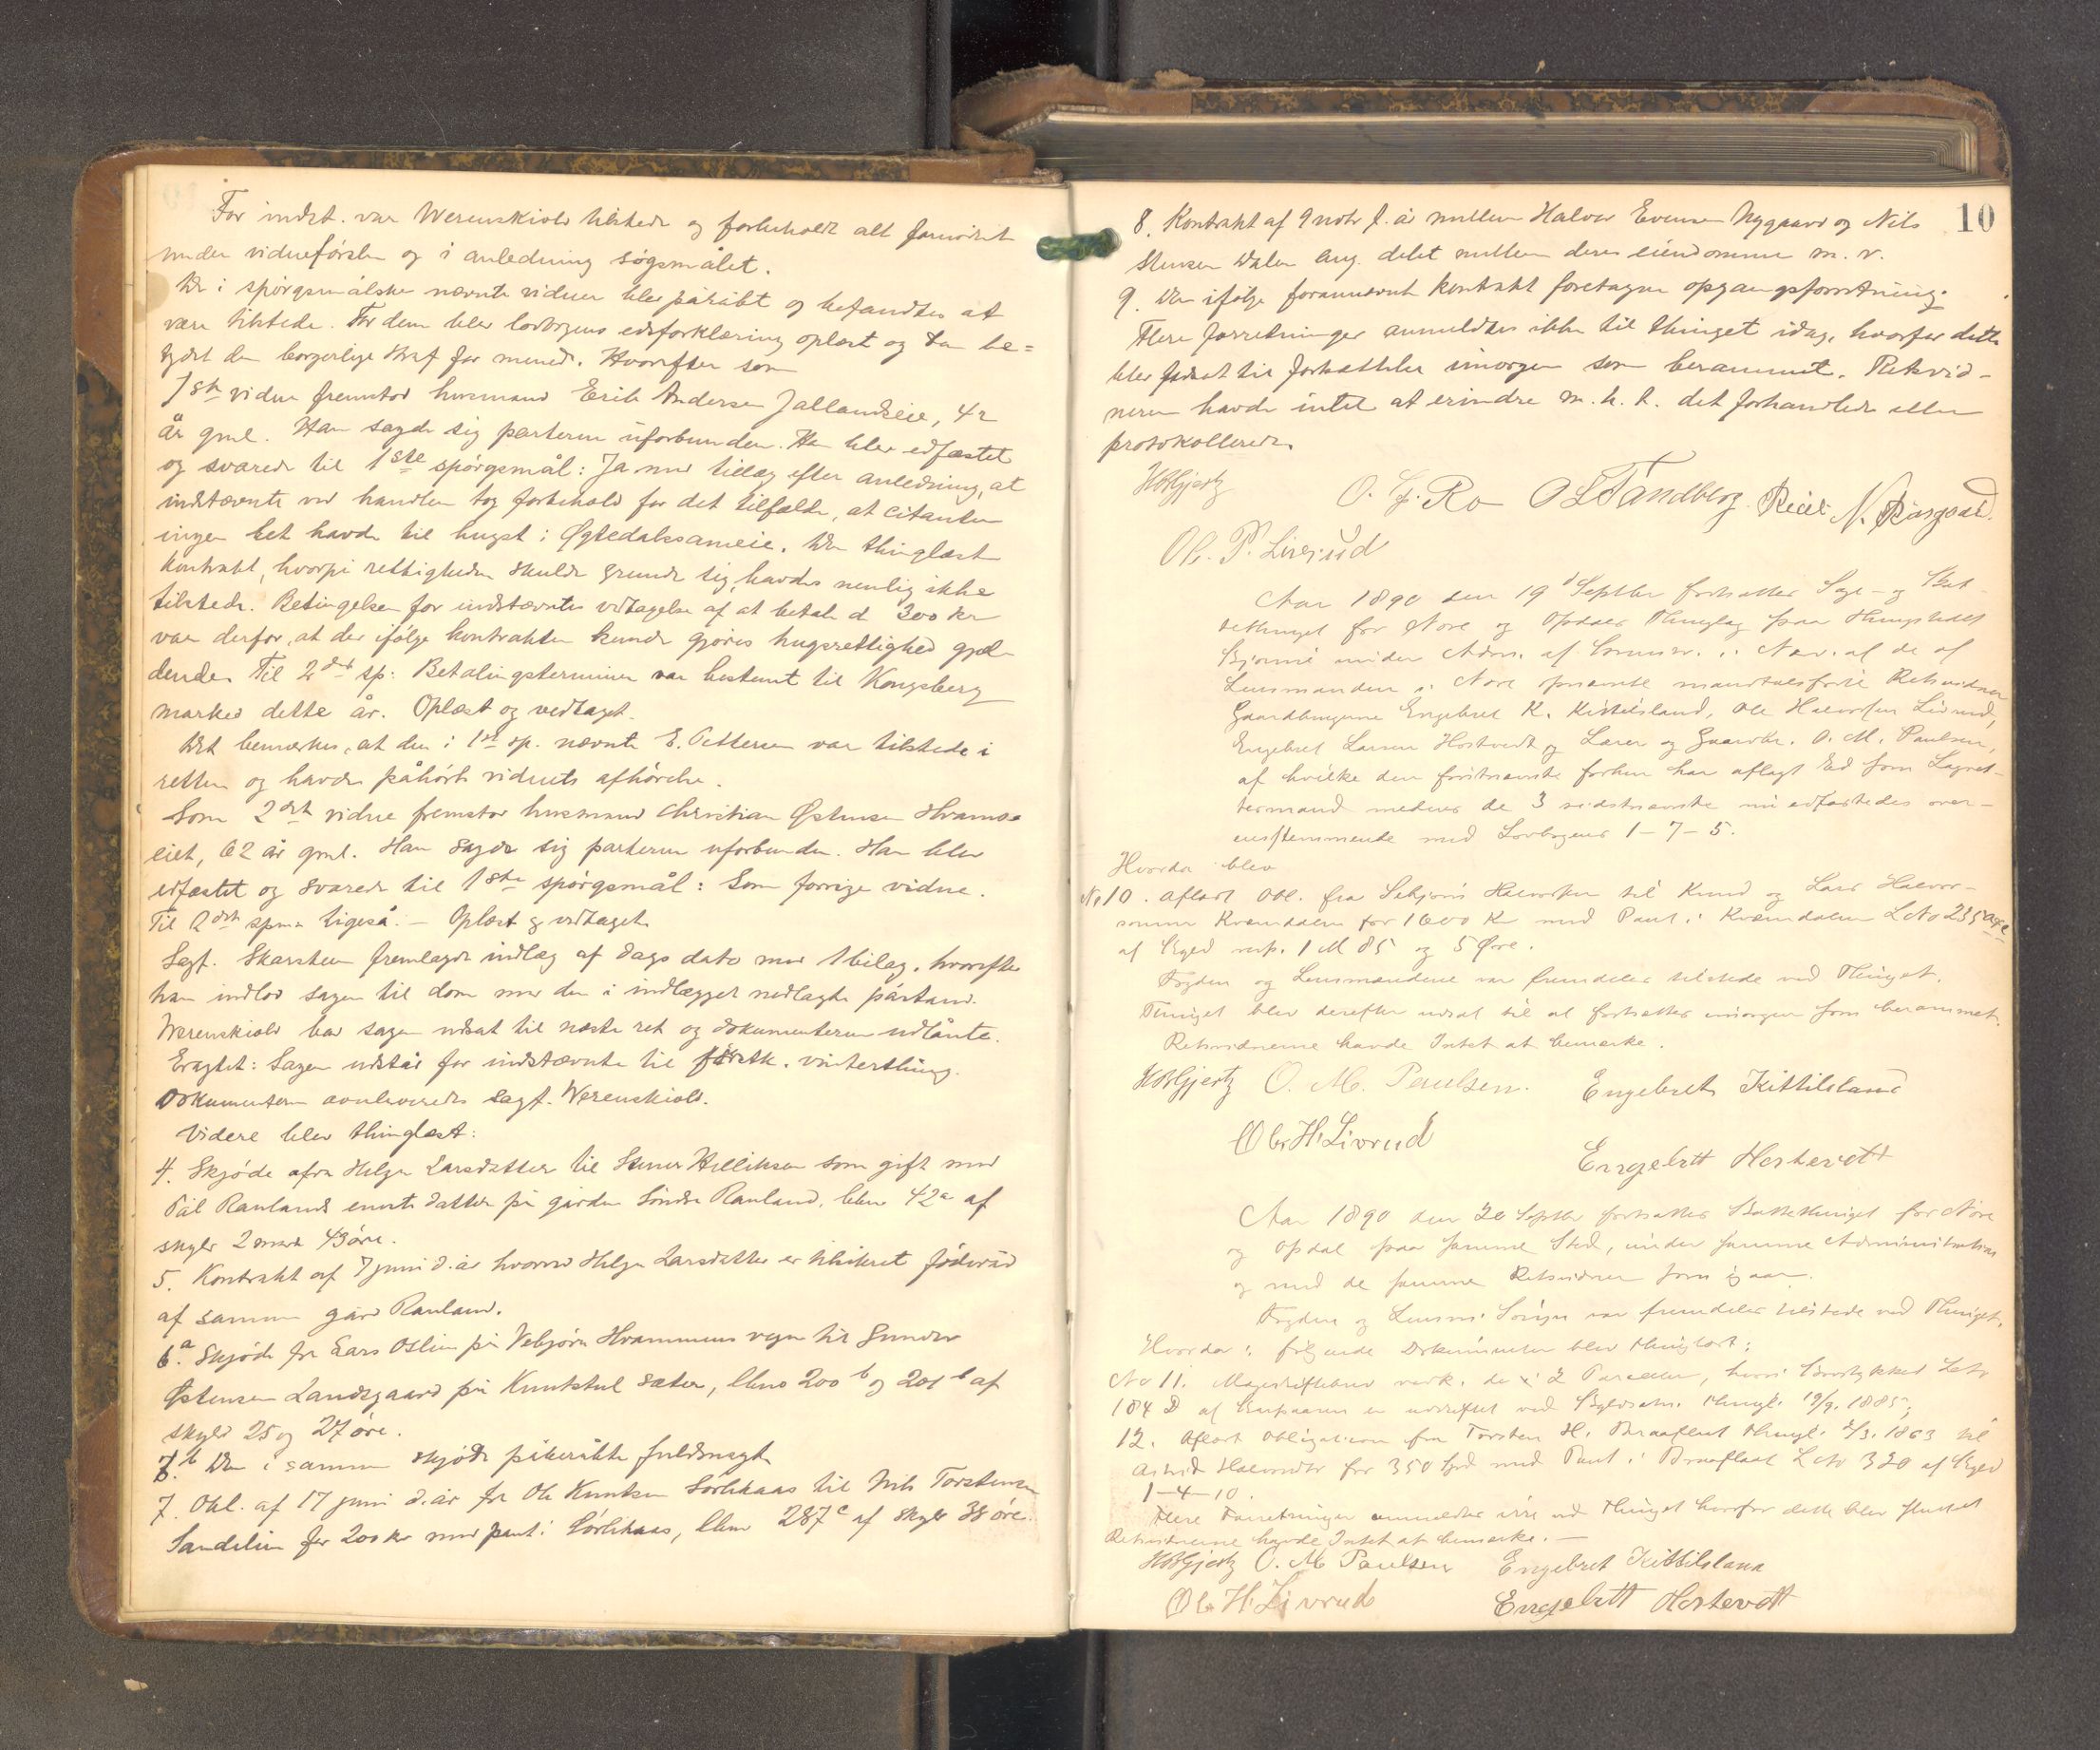 For indst. var Werenskiold tilstede og forbeholdt alt fornødent
under vidneførslen og i anledning søgsmålet.
De i spørgsmålene nævnte vidner blev påråbt og befandtes at
være tilstede. For dem blev lovbogens edsforklæring oplæst og de be=
tydet den borgerlige straf for mened. Hvorefter som
1ste vidne fremstod husmand Erik Andersen Jallandseie, 42
år gml. Han sagde sig parterne uforbunden. Han blev edfæstet
og svarede til 1ste spørgsmål: Ja med tillæg efter anledning, at
indstævnte ved handlen tog forbehold for det tilfælde, at citanten
ingen ret havde til hugst i Øgtedalssameie. Den thinglæste
kontrakt, hvorpå rettigheden skulde grunde sig, havdes nemlig ikke
tilstede. Betingelsen for indstævntes vedtagelse af at betale d 300 kr
var derfor, at der ifølge kontrakten kunde gjøres hugsrettighed gjæl-
dende. Til 2det sp: Betalingsterminen var bestemt til Kongsberg
marked dette år. Oplæst og vedtaget.
Det bemærkes, at den i 1st sp. nævnte E. Pettersen var tilstede i
retten og havde påhørt vidnets afhørelse.
Som 2det vidne fremstod husmand Christian Østensen Hvams-
eiet, 62 år gml. Han sagde sig parterne uforbunden. Han blev
edfæstet og svarede til 1ste spørgsmål: Som forrige vidne.
Til 2det spm. ligeså. – Oplæst & vedtaget.
Sagf. Skarsteen fremlagde indlæg af dags dato med 1 bilag, hvorefter
han indlod sagen til dom med den i indlægget nedlagte påstand.
Werenskiold bad sagen udsat til næste ret og dokumenterne udlånte.
Eragtet: Sagen udstår for indstævnte til førstk. vinterthing.
Dokumenterne avleveredes sagf. Werenskiold.
Videre blev thinglæst:
4. Skjøde afra Helge Larsdatter til Stener Helliksen som gift med
Pål Raulands eneste datter på gården Søndre Rauland, lbno 42a af
skyld 2 mark 43 øre.
5. Kontrakt af 7 juni d. år hvorved Helge Larsdatter er tilsikret föderåd
af samme gård Rauland.
6.a Skjøde fra Lars Oslien på Vebjørn Hvammens vegne til Gunder
Østensen Landsgaard på Knutstul sæter, lbno 200 b og 201 b af
skyld 25 og 27 øre.
b. Den i samme skjøde påberåbte fuldmagt.
7. Obl. af 17 juni d. år fra Ole Knutsen Sørlikaas til Nils Torstensen
Sandelien for 200 kr med pant i Sørlikaas, lbno 287c af skyld 38 øre.
10
8. Kontrakt af 9 novbr f. år mellem Halvor Evensen Nygaard og Nils
Stensen Dalen ang. delet mellem deres eiendomme m. v.
9. Den ifølge forannævnte kontrakt foretagne opgangsforretning.
Flere forretninger anmeldtes ikke til thinget idag, hvorfor dette
blev udsat til fortsættelse imorgen som berammet. Retsvid-
nerne havde intet at erindre m. h. t. det forhandlede eller
protokollerede.
HBGjertz O. G. Ro O L Tandberg N. Bergaard
Ole P. Livrud
Aar 1890 den 19d Septbr fortsattes Sage- og Skat-
tethinget for Nore og Opdals Thinglag paa Thingstedet
Bjørnø under Adm. af Sorenskr. i Nærv. af de af
Lensmanden i Nore opnævnte mandtalsførte Retsvidner
Gaardbrugerne Engebret K. Kittilsland, Ole Halvorsen Livrud,
Engebret Larsen Hostvedt og Lærer og Gaardbr. O. M. Paulsen,
af hvilke den førstnævnte forhen har aflagt Ed som Lagret-
termand medens de 3 sidstnævnte nu edfæstedes over-
ensstemmende med Lovbogens 1–7–5.
Hvorda blev
No 10. aflæst Obl. fra Sebjørn Halvorsen til Knud og Lars Halvor-
sønner Kvendalen for 1600 Kr med Pant i Kvendalen L No 235 a&e
af Skyld resp. 1 M 85 og 5 Øre.
Fogden og Lensmændene var fremdeles tilstede ved Thinget.
Thinget blev derefter udsat til at fortsættes imorgen som berammet.
Retsvidnerne havde Intet at bemærke.
HBGjertz O. M. Paulsen. Engebret Kittilsland
Ole H. Livrud
Engebrett Hostevett
Aar 1890 den 20 Septbr fortsattes Skattethinget for Nore
og Opdal paa samme Sted, under samme Administration
og med de samme Retsvidner som igaar.
Fogden og Lensm. var fremdeles tilstede ved Thinget.
Hvorda følgende Dokumenter blev thinglæst:
No 11. Mageskiftebrev vedk. de 2 Parceller, hvori LNo
184 D af er udskiftet ved Skyldsætn. thingl. 19/9. 1885;
12. Aflæst Obligation fra Torsten H. Braaflaat thingl. 2/3. 1863 til
Astrid Halvorsdtr for 350 Spd med Pant i Braaflaat L No 320 af Skyld
1–4–10.
Flere Forretninger anmeldtes ikke ved Thinget hvorfor dette blev sluttet
Retsvidnerne havde Intet at bemærke. –
HBGjertz O. M. Paulsen Engebret Kittilsland
Ole H. Livrud Engebrett Hostevett